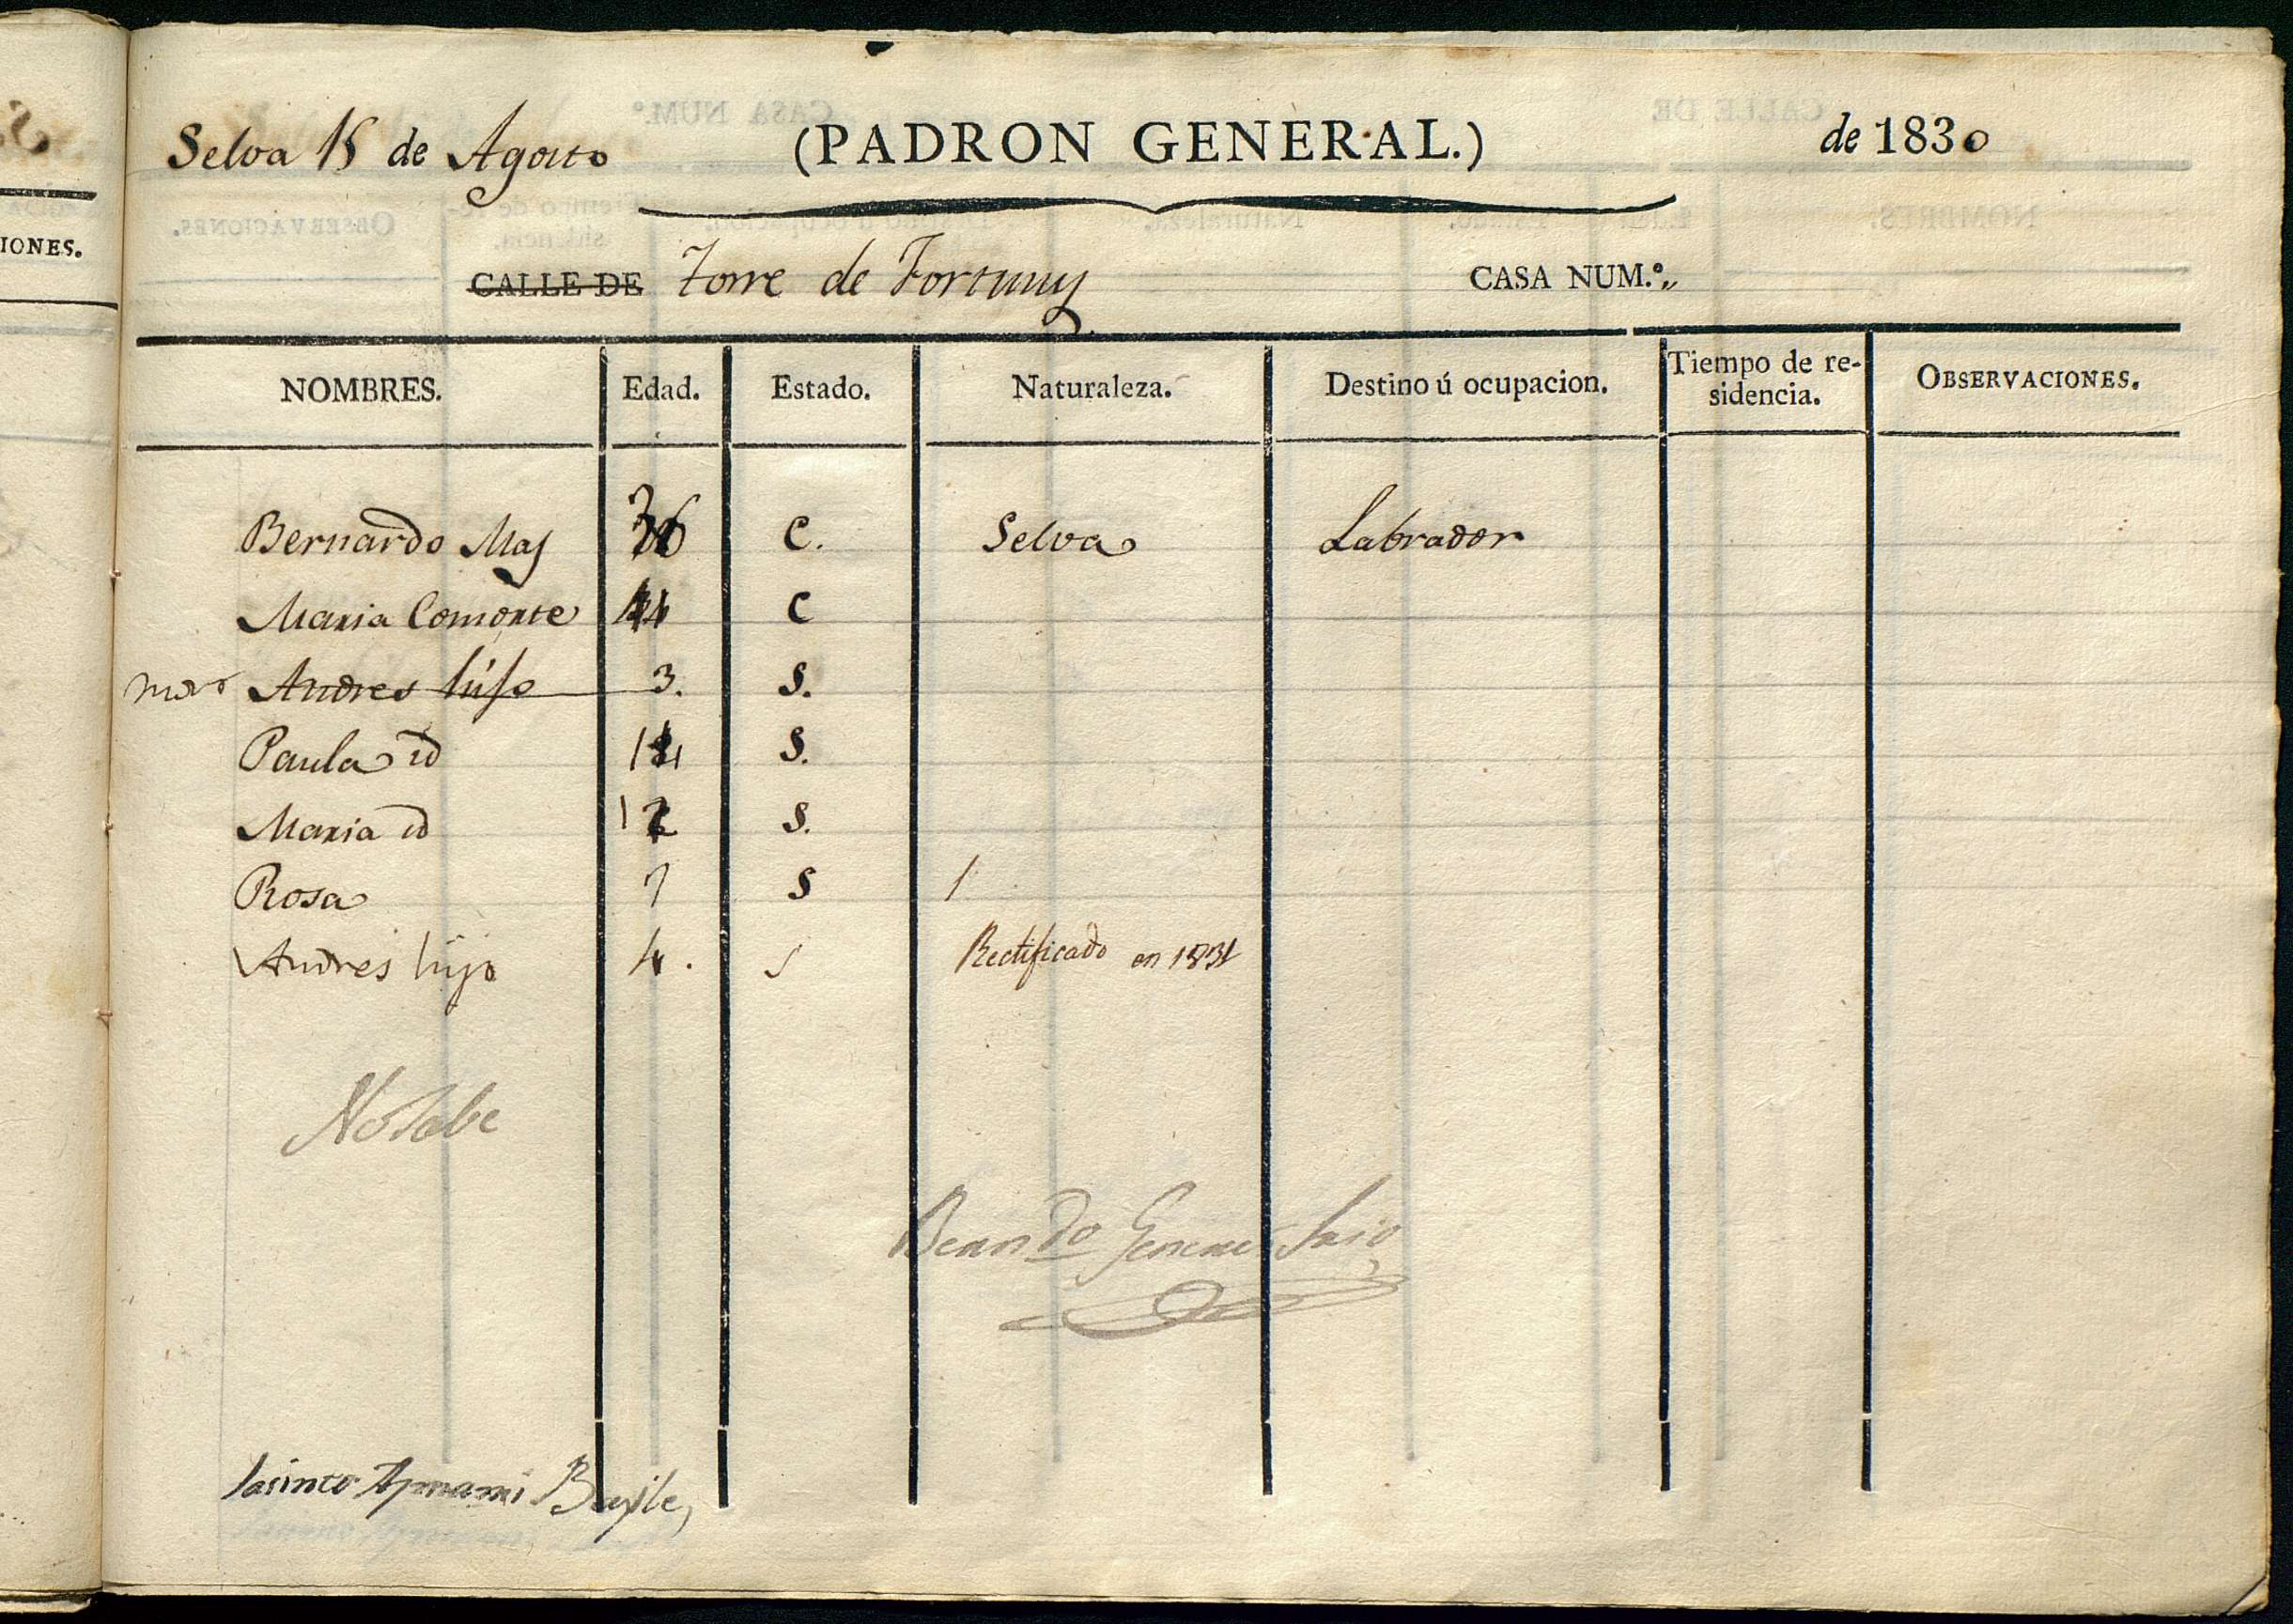 Selva 15 de Agosto (PADRON GENERAL.) de 1830
CALLE DE Torre de Fortuny CASA NUM.º „
NOMBRES. Edad. Estado. Naturaleza. Destino ú ocupacion. Tiempo de residencia. OBSERVACIONES.
Bernardo Mas 36 C. Selva Labrador
Maria C
Andres hijo 3. S.
Paula id 14 S.
Maria id 12 S.
Rosa 7 S
Andres hijo 4. S Rectificado en 1831
No sabe
Jacinto Bayle,
IONES.